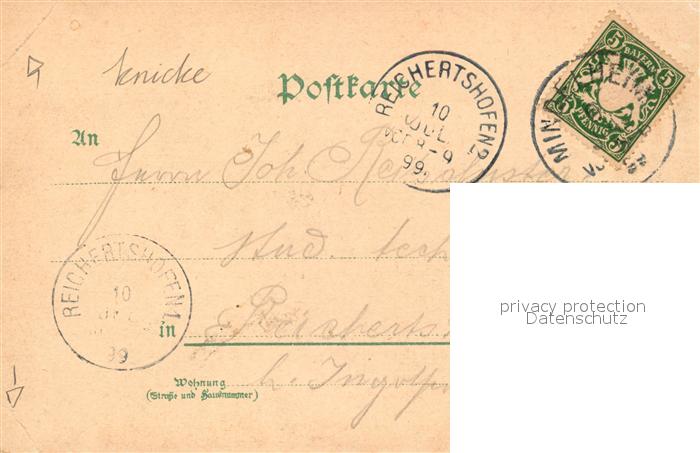 knicke
Postkarte
REICHERTSHOFEN 2
10
JUL.
8-9
99.
5 BAYERN 5
5 PFENNIG 5
MINDELHEIM
An
Herrn Joh.
stud. tech
REICHERTSHOFEN 1.
10
99
in Reicherts
b. Ingolst
Wohnung
(Straße und Hausnummer)
privacy protection
Datenschutz